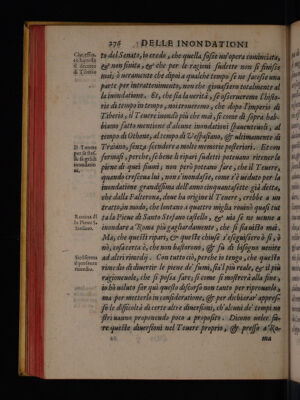 276 DELLE INONDATIONI
to del Senato, io credo, che quella fosse un'opera cominciata,
& non finita, & che per le ragioni sudette non si finisse
mai; ò veramente che dipoi a qualche tempo se ne facesse una
parte per intrattenimento, non che giovassero totalmente al
la inondatione. Et, che sia la verità, se discorreremo l'histo
rie di tempo in tempo, mitroveremo, che dopo l'imperio di
Tiberio, il Tevere inondò più che mai, sì come di sopra hab-
biamo fatto mentione d'alcune inondationi spaventevoli, al
tempo di Othone, al tempo di Vespasiano, & ultimamente di
Traiano, senza scendere a molte memorie posteriori. Et con
fermasi, perche, se bene li ripari sudetti poteano ritener le
piene di quei fiumi, non però poteano fare, che il Tevere,
quando cresceva lui, non s'inondasse, come s'è veduto per la
inondatione grandissima dell'anno cinquantasette già detta,
che dalla Palterna, dove ha origine il Tevere, crebbe a un
tratto, in modo, che lontano a quattro miglia rovinò quasi tut
ta la Pieve di Santo Stefano castello, & via se ne venne a
inondare a Roma più gagliardamente, che si sia visto mai.
Ma, che questi ripari, & queste chiuse s'eseguissero ò sì, ò
nò, cosa certa è, che non bastarono, & fù di bisogno venire
ad altri rimedij. Con tutto ciò, perche io tengo, che questo
rimedio di divertir le piene de' fiumi, sia'l più reale, & il più
ragionevole, che si possa fare; sì come si mostrerà alla fine,
io hò voluto far quì questo discorso non tanto per riprovarlo,
ma per metterlo in consideratione, & per dichiarar' appres-
so le difficoltà di certe altre diversioni, ch'alcuni de' tempi no
stri vanno proponendo poco a proposito. Dicono voler fa-
re queste diversioni nel Tevere proprio, & presso a Ro-
ma